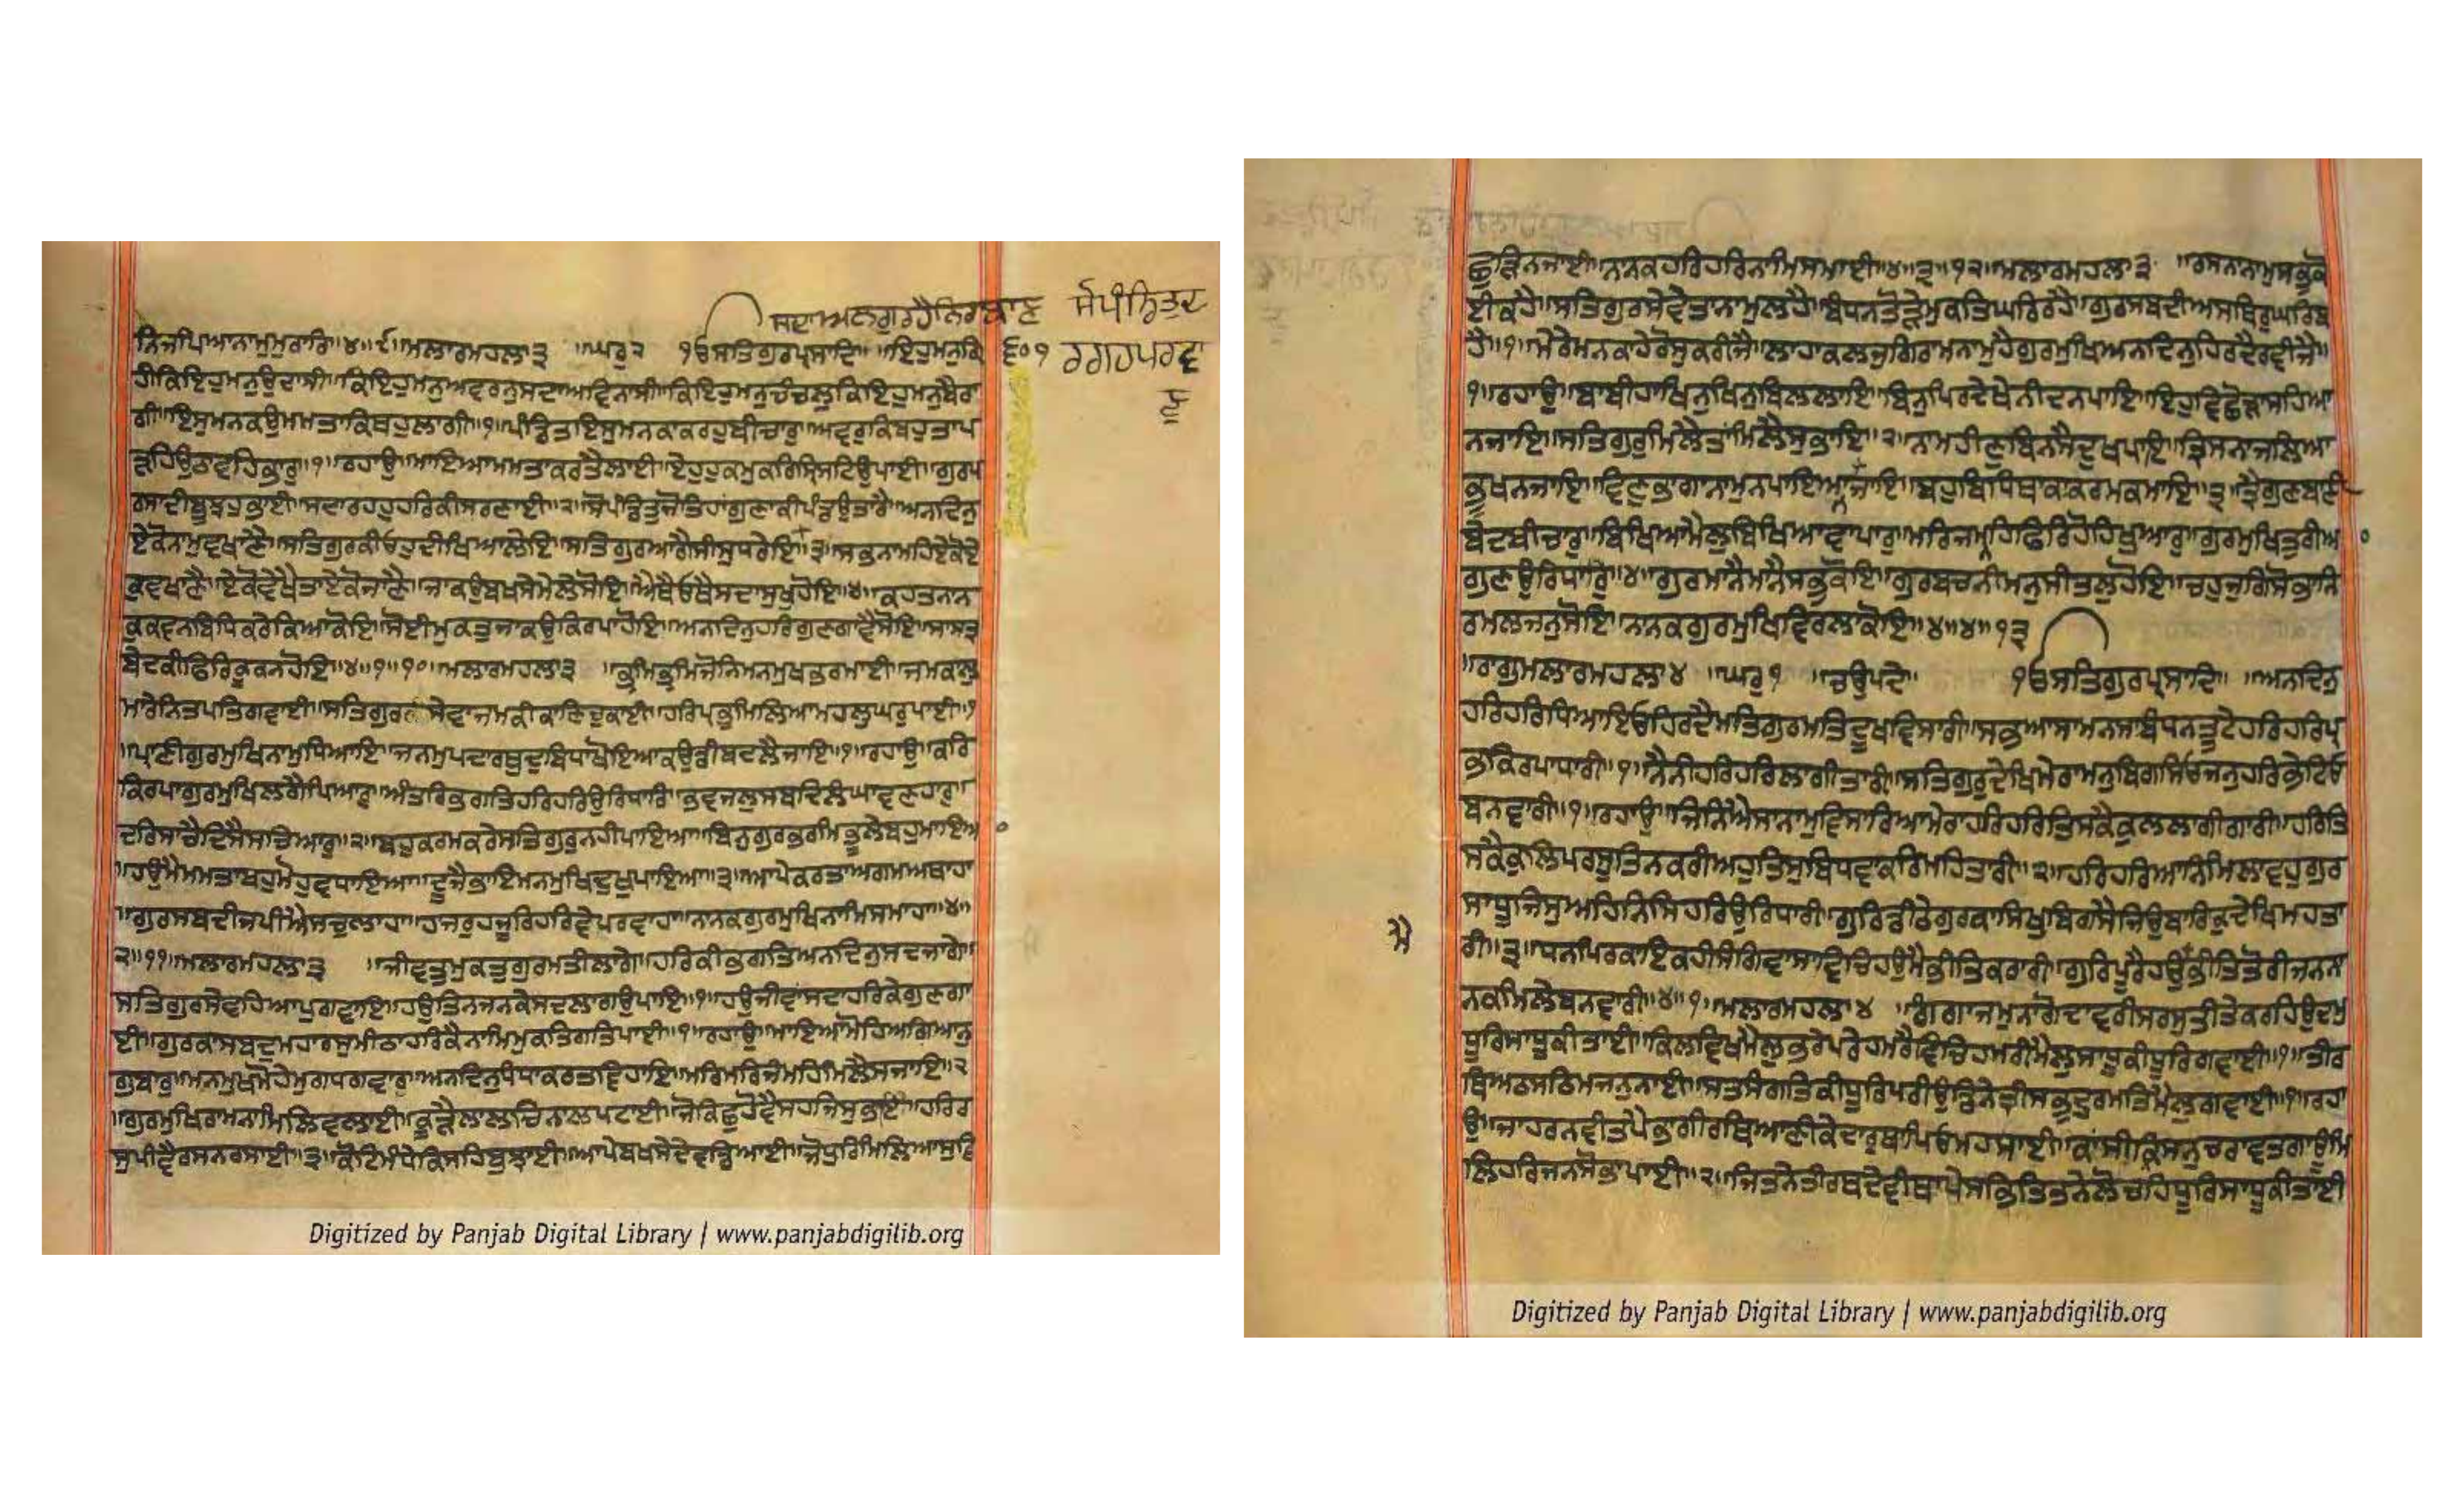 ਸਦਾਅਲਗੁਰਹੈਨਿਰਬਾਣ ਸੋਪੰਡਿਤੁਦ
ਰਗਹਪਰਵਾ
ਣੁ
੬੦੧
ਨਿਜਪਿਆਨਾਮੁਮੁਰਾਰਿ॥੪॥੯॥ਮਲਾਰਮਹਲਾ੩ ॥ਘਰੁ੨ ੴਸਤਿਗੁਰਪ੍ਰਸਾਦਿ॥ ॥ਇਹੁਮਨੁਗਿ
ਹੀਕਿਇਹੁਮਨੁਉਦਾਸੀ॥ਕਿਇਹੁਮਨੁਅਵਰਨੁਸਦਾਅਵਿਨਾਸੀ॥ਕਿਇਹੁਮਨੁਚੰਚਲੁਕਿਇਹੁਮਨੁਬੈਰਾ
ਗੀ॥ਇਸੁਮਨਕਉਮਮਤਾਕਿਥਹੁਲਾਗੀ॥੧॥ਪੰਡਿਤਇਸੁਮਨਕਾਕਰਹੁਬੀਚਾਰੁ॥ਅਵਰੁਕਿਬਹੁਤਾਪ
ੜਹਿਉਠਾਵਹਿਭਾਰੁ॥੧॥ਰਹਾਉ॥ਮਾਇਆਮਮਤਾਕਰਤੈਲਾਈ॥ਏਹੁਹੁਕਮੁਕਰਿਸ੍ਰਿਸਟਿਉਪਾਈ॥ਗੁਰਪ
ਰਸਾਦੀਬੂਝਹੁਭਾਈ॥ਸਦਾਰਹਹੁਹਰਿਕੀਸਰਣਾਈ॥੨॥ਸੋਪੰਡਿਤੁਜੋਤਿਹਾਂਗੁਣਾਕੀਪੰਡਉਤਾਰੈ॥ਅਨਦਿਨੁ
ਏਕੋਨਾਮੁਵਖਾਣੈ॥ਸਤਿਗੁਰਕੀਓਹੁਦੀਖਿਆਲੇਇ॥ਸਤਿਗੁਰਆਗੈਸੀਸੁਧਰੇਇ॥੩॥ਸਭਨਾਮਹਿਏਕੋਏ
ਕੁਵਖਾਣੈ॥ਏਕੋਵੇਖੈਤਾਏਕੋਜਾਣੈ॥ਜਾਕਉਬਖਸੇਮੇਲੇਸੋਇ॥ਐਥੈਓਥੈਸਦਾਸੁਖੁਹੋਇ॥੪॥ਕਹਤਨਾਨ
ਕੁਕਵਨਬਿਧਿਕਰੇਕਿਆਕੋਇ॥ਸੋਈਮੁਕਤੁਜਾਕਉਕਿਰਪਾਹੋਇ॥ਅਨਦਿਨੁਹਰਿਗੁਣਗਾਵੈਸੋਇ॥ਸਾਸਤ੍ਰ
ਬੇਦਕੀਫਿਰਿਕੂਕਨਹੋਇ॥੪॥੧॥੧੦॥ਮਲਾਰਮਹਲਾ੩ ॥ਭ੍ਰਮਿਭ੍ਰਮਿਜੋਨਿਮਨਮੁਖਭਰਮਾਈ॥ਜਮਕਾਲੁ
ਮਾਰੇਨਿਤਪਤਿਗਵਾਈ॥ਸਤਿਗੁਰਸੇਵਾਜਮਕੀਕਾਣਿਚੁਕਾਈ॥ਹਰਿਪ੍ਰਭੁਮਿਲਿਆਮਹਲੁਘਰੁਪਾਈ॥੧
॥ਪ੍ਰਾਣੀਗੁਰਮੁਖਿਨਾਮੁਧਿਆਇ॥ਜਨਮੁਪਦਾਰਥੁਦੁਬਿਧਾਖੋਇਆਕਉਡੀਬਦਲੈਜਾਇ॥੧॥ਰਹਾਉ॥ਕਰਿ
ਕਿਰਪਾਗੁਰਮੁਖਿਲਗੈਪਿਆਰੁ॥ਅੰਤਰਿਭਗਤਿਹਰਿਹਰਿਉਰਿਧਾਰਿ॥ਭਵਜਲੁਸਬਦਿਲੰਘਾਵਣਹਾਰੁ॥
ਦਰਿਸਾਚੈਦਿਸੈਸਚਿਆਰੁ॥੨॥ਬਹੁਕਰਮਕਰੇਸਤਿਗੁਰੁਨਹੀਪਾਇਆ॥ਬਿਨੁਗੁਰਭਰਮਿਭੂਲੇਬਹੁਮਾਇਆ
॥ਹਉਮੈਮਮਤਾਬਹੁਮੋਹੁਵਧਾਇਆ॥ਦੂਜੈਭਾਇਮਨਮੁਖਿਦੁਖੁਪਾਇਆ॥੩॥ਆਪੇਕਰਤਾਅਗਮਅਥਾਹਾ
॥ਗੁਰਸਬਦੀਜਪੀਐਸਚੁਲਾਹਾ॥ਹਾਜਰੁਹਜੂਰਿਹਰਿਵੇਪਰਵਾਹਾ॥ਨਾਨਕਗੁਰਮੁਖਿਨਾਮਿਸਮਾਹਾ॥੪॥
੨॥੧੧॥ਮਲਾਰਮਹਲਾ੩ ॥ਜੀਵਤਮੁਕਤੁਗੁਰਮਤੀਲਾਗੇ॥ਹਰਿਕੀਭਗਤਿਅਨਦਿਨੁਸਦਜਾਗੇ॥
ਸਤਿਗੁਰਸੇਵਹਿਆਪੁਗਵਾਇ॥ਹਉਤਿਨਜਨਕੇਸਦਲਾਗਉਪਾਇ॥੧॥ਹਉਜੀਵਾਂਸਦਾਹਰਿਕੇਗੁਣਗਾ
ਈ॥ਗੁਰਕਾਸਬਦੁਮਹਾਰਸੁਮੀਠਾਹਰਿਕੈਨਾਮਿਮੁਕਤਿਗਤਿਪਾਈ॥੧॥ਰਹਾਉ॥ਮਾਇਆਮੋਹਿਅਗਿਆਨੁ
ਗੁਬਾਰੁ॥ਮਨਮੁਖਮੋਹੇਮੁਗਧਗਵਾਰੁ॥ਅਨਦਿਨੁਧੰਧਾਕਰਤਵਿਹਾਇ॥ਮਰਿਮਰਿਜੰਮਹਿਮਿਲੈਸਜਾਇ॥੨
॥ਗੁਰਮੁਖਿਰਾਮਨਾਮਿਲਿਵਲਾਈ॥ਕੂੜੈਲਾਲਚਿਨਾਲਪਟਾਈ॥ਜੋਕਿਛੁਹੋਵੈਸਹਜਿਸੁਭਾਇ॥ਹਰਿਰ
ਸੁਪੀਵੈਰਸਨਰਸਾਈ॥੩॥ਕੋਟਿਮੰਧੇਕਿਸਹਿਬੁਝਾਈ॥ਆਪੇਬਖਸੇਦੇਵਡਿਆਈ॥ਜੋਧੁਰਿਮਿਲਿਆਸੁਵਿ
ਛੁੜਿਨਜਾਈ॥ਨਾਨਕਹਰਿਹਰਿਨਾਮਿਸਮਾਈ॥੪॥੩॥੧੨॥ਮਲਾਰਮਹਲਾ੩ ॥ਰਸਨਾਨਾਮੁਸਭੁਕੋ
ਈਕਹੈ॥ਸਤਿਗੁਰਸੇਵੇਤਾਨਾਮੁਲਹੈ॥ਬੰਧਨਤੋੜੇਮੁਕਤਿਘਰਿਰਹੈ॥ਗੁਰਸਬਦੀਅਸਥਿਰੁਘਰਿਬ
ਹੈ॥੧॥ਮੇਰੇਮਨਕਾਹੇਰੋਸੁਕਰੀਜੈ॥ਲਾਹਾਕਲਜੁਗਿਰਾਮਨਾਮੁਹੈਗੁਰਮੁਖਿਅਨਦਿਨੁਹਿਰਦੈਰਵੀਜੈ॥
੧॥ਰਹਾਉ॥ਬਾਬੀਹਾਖਿਨੁਖਿਨੁਬਿਲਲਾਇ॥ਬਿਨੁਪਿਰਦੇਖੇਨੀਦਨਪਾਇ॥ਇਹੁਵੇਛੋੜਾਸਹਿਆ
ਨਜਾਇ॥ਸਤਿਗੁਰੁਮਿਲੈਤਾਂਮਿਲੈਸੁਭਾਇ॥੨॥ਨਾਮਹੀਣੁਬਿਨਸੈਦੁਖਪਾਇ॥ਤ੍ਰਿਸਨਾਜਲਿਆ
ਭੂਖਨਜਾਇ॥ਵਿਣੁਭਾਗਾਨਾਮੁਨਪਾਇਆਜਾਇ॥ਬਹੁਬਿਧਿਥਾਕਾਕਰਮਕਮਾਇ॥੩॥ਤ੍ਰੈਗੁਣਬਾਣੀ
ਬੇਦਬੀਚਾਰੁ॥ਬਿਖਿਆਮੈਲੁਬਿਖਿਆਵਾਪਾਰੁ॥ਮਰਿਜਮਹਿਫਿਰਿਹੋਹਿਖੁਆਰੁ॥ਗੁਰਮੁਖਿਤੁਰੀਆ
ਗੁਣਉਰਿਧਾਰੁ॥੪॥ਗੁਰਮਾਨੈਮਾਨੈਸਭੁਕੋਇ॥ਗੁਰਬਚਨੀਮਨੁਸੀਤਲੁਹੋਇ॥ਚਹੁਜੁਗਿਸੋਭਾਨਿ
ਰਮਲਜਨੁਸੋਇ॥ਨਾਨਕਗੁਰਮੁਖਿਵਿਰਲਾਕੋਇ॥੪॥੪॥੧੩
॥ਰਾਗੁਮਲਾਰਮਹਲਾ੪ ॥ਘਰੁ੧ ॥ਚਉਪਦੇ॥ ੴਸਤਿਗੁਰਪ੍ਰਸਾਦਿ॥ ॥ਅਨਦਿਨੁ
ਹਰਿਹਰਿਧਿਆਇਓਹਿਰਦੈਮਤਿਗੁਰਮਤਿਦੂਖਵਿਸਾਰੀ॥ਸਭਆਸਾਮਨਸਾਬੰਧਨਤੂਟੇਹਰਿਹਰਿਪ੍ਰ
ਭਕਿਰਪਾਧਾਰੀ॥੧॥ਨੈਨੀਹਰਿਹਰਿਲਾਗੀਤਾਰੀ॥ਸਤਿਗੁਰੁਦੇਖਿਮੇਰਾਮਨੁਬਿਗਸਿਓਜਨੁਹਰਿਭੇਟਿਓ
ਬਨਵਾਰੀ॥੧॥ਰਹਾਉ॥ਜਿਨਿਐਸਾਨਾਮੁਵਿਸਾਰਿਆਮੇਰਾਹਰਿਹਰਿਤਿਸਕੈਕੁਲਲਾਗੀਗਾਰੀ॥ਹਰਿਤਿ
ਸਕੈਕੁਲਿਪਰਸੂਤਿਨਕਰੀਅਹੁਤਿਸੁਬਿਧਵਾਕਰਿਮਹਿਤਾਰੀ॥੨॥ਹਰਿਹਰਿਆਨਿਮਿਲਾਵਹੁਗੁਰ
ਸਾਧੂਜਿਸੁਅਹਿਨਿਸਿਹਰਿਉਰਿਧਾਰੀ॥ਗੁਰਿਡੀਠੇਗੁਰਕਾਸਿਖੁਬਿਗਸੈਜਿਉਬਾਰਿਕੁਦੇਖਿਮਹਤਾ
ਰੀ॥੩॥ਧਨਪਿਰਕਾਇਕਹੀਸੰਗਿਵਾਸਾਵਿਚਿਹਉਮੈਭੀਤਿਕਰਾਰੀ॥ਗੁਰਿਪੂਰੈਹਉਭੀਤਿਤੋਰੀਜਨਨਾ
ਮੈ
ਨਕਮਿਲੇਬਨਵਾਰੀ॥੪॥੧॥ਮਲਾਰਮਹਲਾ੪ ॥ਗੰਗਾਜਮੁਨਾਗੋਦਾਵਰੀਸਰਸੁਤੀਤੇਕਰਹਿਉਦਮੁ
ਧੂਰਿਸਾਧੂਕੀਤਾਈ॥ਕਿਲਵਿਖਮੈਲੁਭਰੇਪਰੇਹਮਰੈਵਿਚਿਹਮਰੀਮੈਲੁਸਾਧੂਕੀਧੂਰਿਗਵਾਈ॥੧॥ਤੀਰ
ਥਿਅਠਸਠਿਮਜਨੁਨਾਈ॥ਸਤਸੰਗਤਿਕੀਧੂਰਿਪਰੀਉਡਿਨੇਤ੍ਰੀਸਭਦੁਰਮਤਿਮੈਲੁਗਵਾਈ॥੧॥ਰਹਾ
ਉ॥ਜਾਹਰਨਵੀਤਪੈਭਾਗੀਰਥਿਆਣੀਕੇਦਾਰੁਥਾਪਿਓਮਹਸਾਈ॥ਕਾਂਸੀਕ੍ਰਿਸਨੁਚਰਾਵਤਗਾਊਮਿ
ਲਿਹਰਿਜਨਸੋਭਾਪਾਈ॥੨॥ਜਿਤਨੇਤੀਰਥਦੇਵੀਥਾਪੇਸਭਿਤਿਤਨੇਲੋਚਹਿਧੂਰਿਸਾਧੂਕੀਤਾਈ
Digitized by Panjab Digital Library | www.panjabdigilib.org
Digitized by Panjab Digital Library | www.panjabdigilib.org